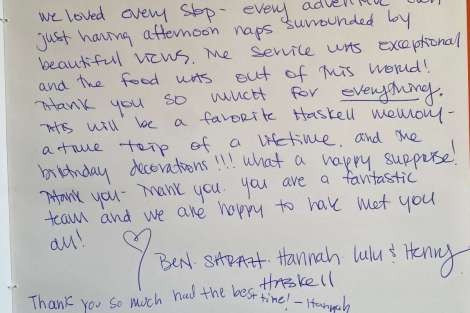 we loved every stop - every adventure even
just having afternoon naps surrounded by
beautiful views. The service was exceptional
and the food was out of this world!
Thank you so much for everything.
This will be a favorite Haskell memory -
a true trip of a lifetime. and the
birthday decorations!!! what a happy surprise!
Thank you - Thank you. you are a fantastic
team and we are happy to have met you
all!
Ben. Sarah. Hannah lulu & Henry
Haskell
Thank you so much had the best time! - Hannah